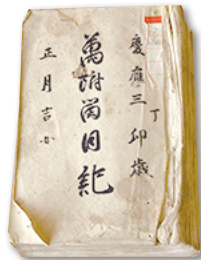 慶應三丁卯歳
萬附留日記
正月吉日